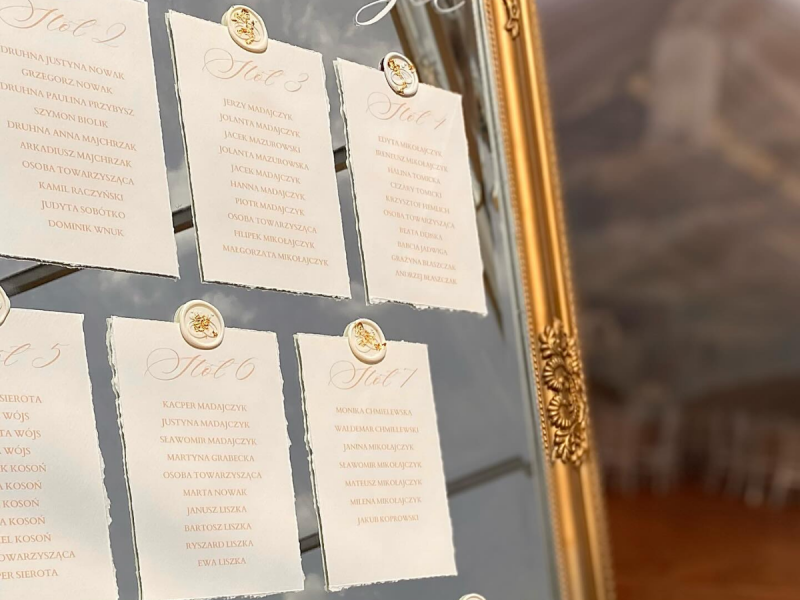 Stół 2
DRUHNA JUSTYNA NOWAK
GRZEGORZ NOWAK
DRUHNA PAULINA PRZYBYSZ
SZYMON BIOLIK
DRUHNA ANNA MAJCHRZAK
ARKADIUSZ MAJCHRZAK
OSOBA TOWARZYSZĄCA
KAMIL RACZYŃSKI
JUDYTA SOBÓTKO
DOMINIK WNUK
Stół 3
JERZY MADAJCZYK
JOLANTA MADAJCZYK
JACEK MAZUROWSKI
JOLANTA MAZUROWSKA
JACEK MADAJCZYK
HANNA MADAJCZYK
PIOTR MADAJCZYK
OSOBA TOWARZYSZĄCA
FILIPEK MIKOŁAJCZYK
MAŁGORZATA MIKOŁAJCZYK
Stół 4
EDYTA MIKOŁAJCZYK
IRENEUSZ MIKOŁAJCZYK
HALINA TOMICKA
CEZARY TOMICKI
KRZYSZTOF
OSOBA TOWARZYSZĄCA
BEATA
BABCIA JADWIGA
GRAŻYNA BŁASZCZAK
ANDRZEJ BŁASZCZAK
5
SIEROTA
WÓJS
WÓJS
WÓJS
KOSOŃ
KOSOŃ
KOSOŃ
KOSOŃ
KOSOŃ
OWARZYSZĄCA
PER SIEROTA
Stół 6
KACPER MADAJCZYK
JUSTYNA MADAJCZYK
SŁAWOMIR MADAJCZYK
MARTYNA GRABECKA
OSOBA TOWARZYSZĄCA
MARTA NOWAK
JANUSZ LISZKA
BARTOSZ LISZKA
RYSZARD LISZKA
EWA LISZKA
Stół 7
MONIKA CHMIELEWSKA
WALDEMAR CHMIELEWSKI
JANINA MIKOŁAJCZYK
SŁAWOMIR MIKOŁAJCZYK
MATEUSZ MIKOŁAJCZYK
MILENA MIKOŁAJCZYK
JAKUB KOPKOWSKI